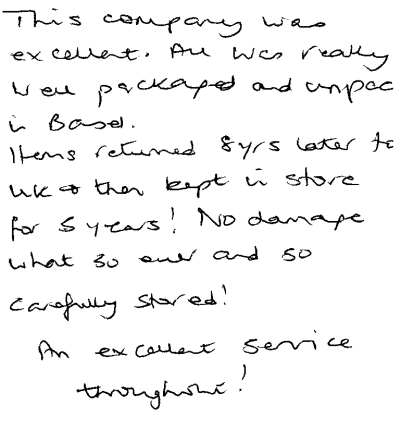 This company was
excellent. All was really
well packaged and unpac
in Basel.
Items returned 8yrs later to
UK & then kept in store
for 5 years! No damage
what so ever and so
carefully stored!
An excellent service
throughout!